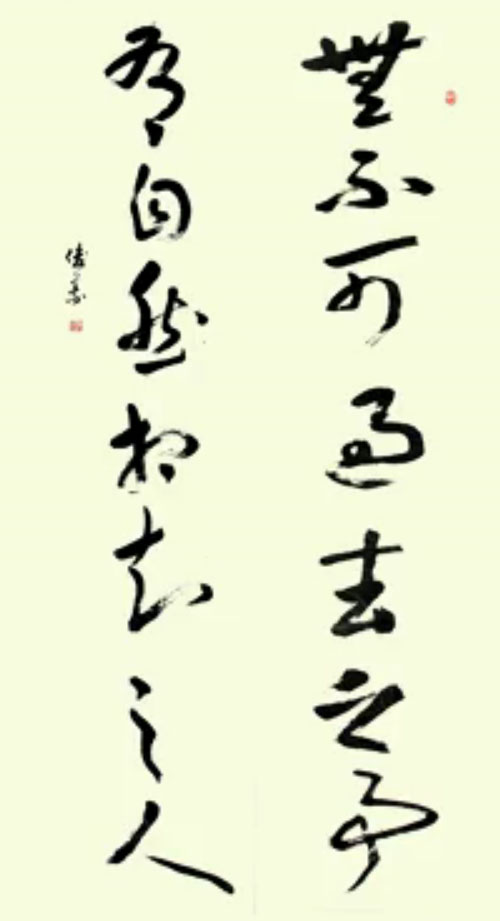 無不可過去之事
有自然相知之人